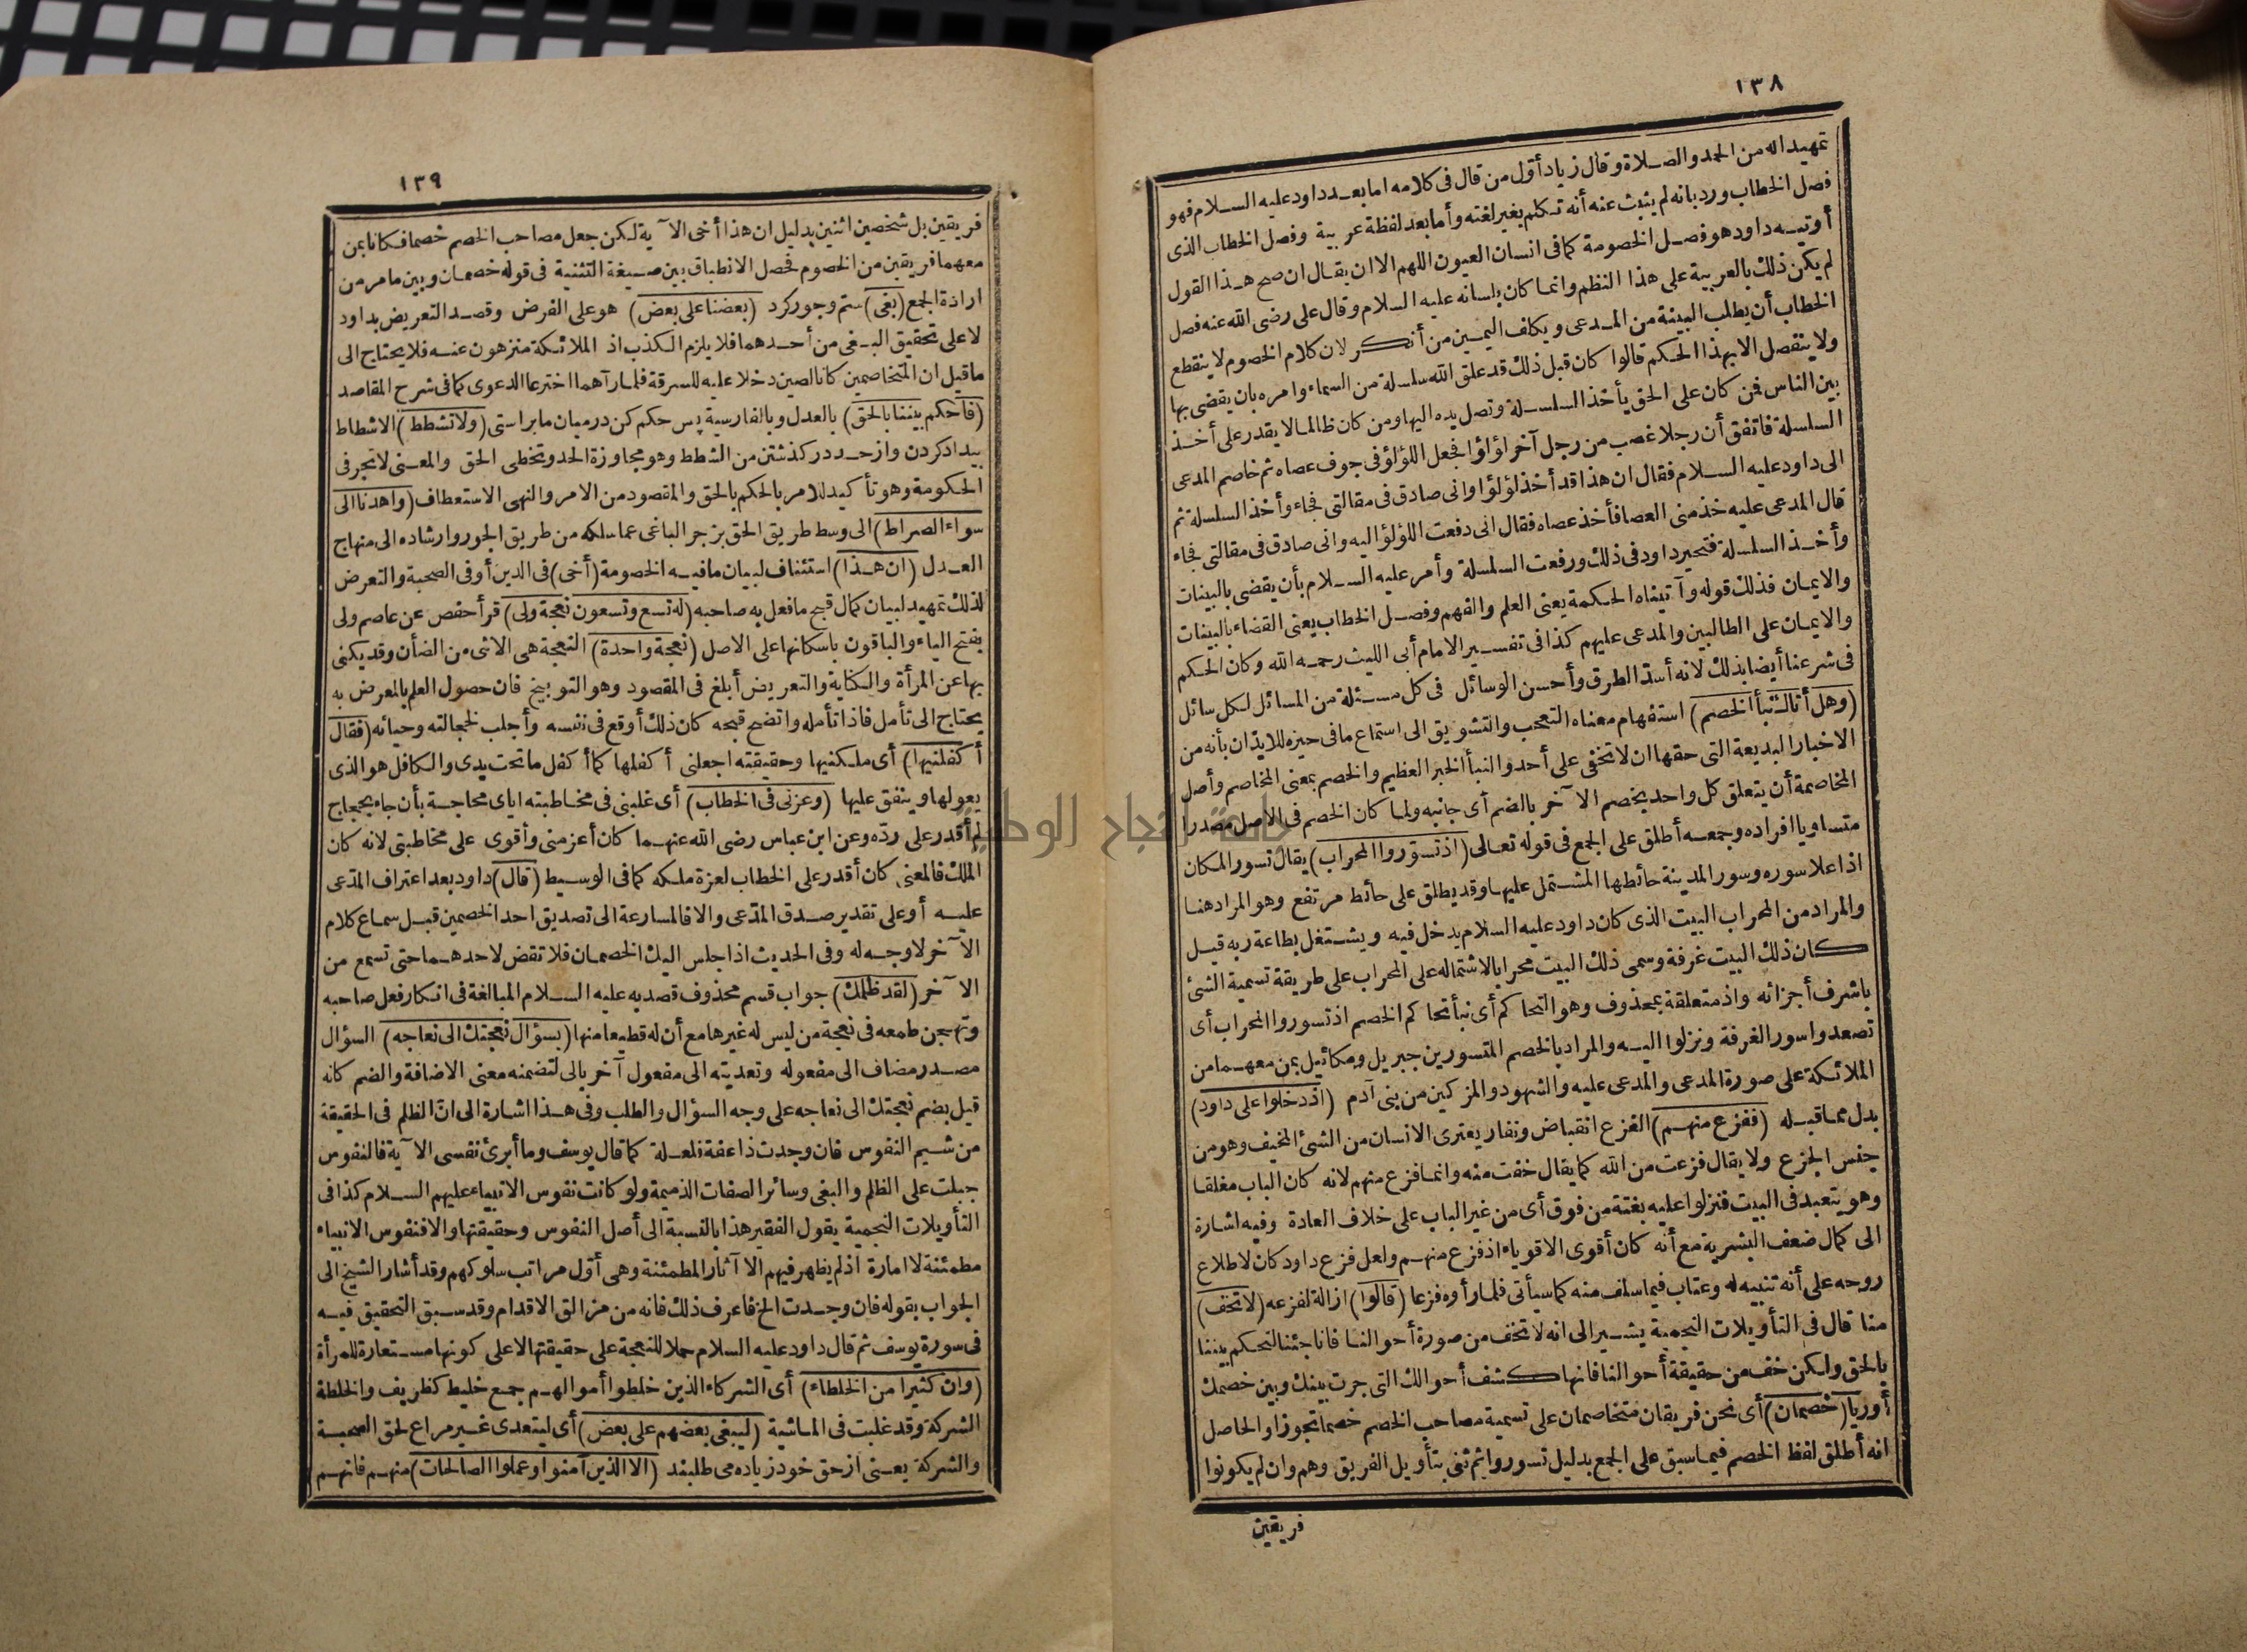 ١٣٨
تمهيدا له من الحمد والصلاة وقال زياد أول من قال فى كلامه اما بعد داود عليه السلام فهو
فصل الخطاب ورد بانه لم يثبت عنه أنه تكلم بغير لغته وأما بعد لفظة عربية وفصل الخطاب الذى
أوتيه داود هو فصل الخصومة كما فى انسان العيون اللهم الا ان يقال ان صح هذا القول
لم يكن ذلك بالعربية على هذا النظم وانما كان بلسانه عليه السلام وقال على رضى الله عنه فصل
الخطاب أن يطلب البينة من المدعى ويكلف اليمين من أنكر لان كلام الخصوم لا ينقطع
ولا ينفصل الا بهذا الحكم قالوا كان قبل ذلك قد علق الله سلسلة من السماء وامره بان يقضى بها
بين الناس فمن كان على الحق يأخذ السلسلة وتصل يده اليها ومن كان ظالما لا يقدر على أخذ
السلسلة فاتفق أن رجلا غصب من رجل آخر لؤلؤا فجعل اللؤلؤ فى جوف عصاه ثم خاصم المدعى
الى داود عليه السلام فقال ان هذا قد أخذ لؤلؤا وانى صادق فى مقالتى فجاء وأخذ السلسلة ثم
قال المدعى عليه خذ منى العصا فأخذ عصاه فقال انى دفعت اللؤلؤ اليه وانى صادق فى مقالتى فجاء
وأخذ السلسلة فتحير داود فى ذلك ورفعت السلسلة وأمر عليه السلام بأن يقضى بالبينات
والايمان فذلك قوله وآتيناه الحكمة يعنى العلم والفهم وفصل الخطاب يعنى القضاء بالبينات
والايمان على الطالبين والمدعى عليهم كذا فى تفسير الامام أبى الليث رحمه الله وكان الحكم
فى شرعنا أيضا بذلك لانه أسدّ الطرق وأحسن الوسائل فى كل مسئلة من المسائل لكل سائل
(وهل أتاك نبأ الخصم) استفهام معناه التعجب والتشويق الى استماع ما فى حيزه للايذان بأنه من
الاخبار البديعة التى حقها ان لا تخفى على أحد والنبأ الخبر العظيم والخصم بمعنى المخاصم وأصل
المخاصمة أن يتعلق كل واحد بخصم الآخر بالضم أى جانبه ولما كان الخصم فى الاصل مصدرا
متساويا افراده وجمعه أطلق على الجمع فى قوله تعالى (اذ تسوّروا المحراب) يقال تسور المكان
اذا علا سوره وسور المدينة حائطها المشتمل عليها وقد يطلق على حائط مرتفع وهو المراد هنا
والمراد من المحراب البيت الذى كان داود عليه السلام يدخل فيه ويشتغل بطاعة ربه قيل
كان ذلك البيت غرفة وسمى ذلك البيت محرابا لاشتماله على المحراب على طريقة تسمية الشئ
باشرف أجزائه واذ متعلقة بمحذوف وهو التحاكم أى نبأ تحاكم الخصم اذ تسوروا المحراب أى
تصعدوا سور الغرفة ونزلوا اليه والمراد بالخصم المتسورين جبريل وميكائيل بمن معهما من
الملائكة على صورة المدعى والمدعى عليه والشهود والمزكين من بنى آدم (اذ دخلوا على داود)
بدل مما قبله (ففزع منهم) الفزع انقباض ونفار يعترى الانسان من الشئ المخيف وهو من
جنس الجزع ولا يقال فزعت من الله كما يقال خفت منه وانما فزع منهم لانه كان الباب مغلقا
وهو يتعبد فى البيت فنزلوا عليه بغتة من فوق أى من غير الباب على خلاف العادة وفيه اشارة
الى كمال ضعف البشرية مع أنه كان أقوى الاقوياء اذ فزع منهم ولعل فزع داود كان لاطلاع
روحه على أنه تنبيه له وعتاب فيما سلف منه كما سيأتى فلما رأوه فزعا (قالوا) ازالة لفزعه (لا تخف)
منا قال فى التأويلات النجمية يشير الى انه لا تخف من صورة أحوالنا فانا جئنا لتحكم بيننا
بالحق ولكن خف من حقيقة أحوالنا فانها كشف أحوالك التى جرت بينك وبين خصمك
أوريا (خصمان) أى نحن فريقان متخاصمان على تسمية مصاحب الخصم خصما تجوزا والحاصل
انه أطلق لفظ الخصم فيما سبق على الجمع بدليل تسوروا ثم ثنى بتأويل الفريق وهم وان لم يكونوا
فريقين
١٣٩
فريقين بل شخصين اثنين بدليل ان هذا أخى الآية لكن جعل مصاحب الخصم خصما فكانا بمن
معهما فريقين من الخصوم فحصل الانطباق بين صيغة التثنية فى قوله خصمان وبين ما مر من
ارادة الجمع (بغى) ستم وجور كرد (بعضنا على بعض) هو على الفرض وقصد التعريض بداود
لا على تحقيق البغى من أحدهما فلا يلزم الكذب اذ الملائكة منزهون عنه فلا يحتاج الى
ما قيل ان المتخاصمين كانا لصين دخلا عليه للسرقة فلما رآهما اخترعا الدعوى كما فى شرح المقاصد
(فاحكم بيننا بالحق) بالعدل وبالفارسية پس حكم كن درميان ما براستى (ولا تشطط) الاشطاط
بيداد كردن واز حد در كذشتن من الشطط وهو مجاوزة الحد وتخطى الحق والمعنى لا تجر فى
الحكومة وهو تأكيد للامر بالحكم بالحق والمقصود من الامر والنهى الاستعطاف (واهدنا الى
سواء الصراط) الى وسط طريق الحق بزجر الباغى عما سلكه من طريق الجور وارشاده الى منهاج
العدل (ان هذا) استئناف لبيان ما فيه الخصومة (أخى) فى الدين أو فى الصحبة والتعرض
لذلك تمهيد لبيان كمال قبح ما فعل به صاحبه (له تسع وتسعون نعجة ولى) قرأ حفص عن عاصم ولى
بفتح الياء والباقون باسكانها على الاصل (نعجة واحدة) النعجة هى الانثى من الضأن وقد يكنى
بها عن المرأة والكناية والتعريض أبلغ فى المقصود وهو التوبيخ فان حصول العلم بالمعرض به
يحتاج الى تأمل فاذا تأمله واتضح قبحه كان ذلك أوقع فى نفسه وأجلب لخجالته وحيائه (فقال
أكفلنيها) أى ملكنيها وحقيقته اجعلنى أكفلها كما أكفل ما تحت يدى والكافل هو الذى
يعولها وينفق عليها (وعزنى فى الخطاب) أى غلبنى فى مخاطبته اياى محاجة بأن جاء بحجاج
لم أقدر على ردّه وعن ابن عباس رضى الله عنهما كان أعز منى وأقوى على مخاطبتى لانه كان
الملك فالمعنى كان أقدر على الخطاب لعزة ملكه كما فى الوسيط (قال) داود بعد اعتراف المدّعى
عليه أو على تقدير صدق المدّعى والا فالمسارعة الى تصديق احد الخصمين قبل سماع كلام
الآخر لا وجه له وفى الحديث اذا جلس اليك الخصمان فلا تقض لاحدهما حتى تسمع من
الآخر (لقد ظلمك) جواب قسم محذوف قصد به عليه السلام المبالغة فى انكار فعل صاحبه
وتهجين طمعه فى نعجة من ليس له غيرها مع أن له قطيعا منها (بسؤال نعجتك الى نعاجه) السؤال
مصدر مضاف الى مفعوله وتعديته الى مفعول آخر بالى لتضمنه معنى الاضافة والضم كانه
قيل بضم نعجتك الى نعاجه على وجه السؤال والطلب وفى هذا اشارة الى انّ الظلم فى الحقيقة
من شيم النفوس فان وجدت ذا عفة فلعلة كما قال يوسف وما أبرئ نفسى الآية فالنفوس
جبلت على الظلم والبغى وسائر الصفات الذميمة ولو كانت نفوس الانبياء عليهم السلام كذا فى
التأويلات النجمية يقول الفقير هذا بالنسبة الى أصل النفوس وحقيقتها والا فنفوس الانبياء
مطمئنة لا امارة اذ لم يظهر فيهم الا آثار المطمئنة وهى أوّل مراتب سلوكهم وقد أشار الشيخ الى
الجواب بقوله فان وجدت الخ فاعرف ذلك فانه من مزالق الاقدام وقد سبق التحقيق فيه
فى سورة يوسف ثم قال داود عليه السلام حملا للنعجة على حقيقتها لا على كونها مستعارة للمرأة
(وان كثيرا من الخلطاء) أى الشركاء الذين خلطوا أموالهم جمع خليط كظريف والخلطة
الشركة وقد غلبت فى الماشية (ليبغى بعضهم على بعض) أى ليتعدى غير مراع لحق الصحبة
والشركة يعنى از حق خود زياده مى طلبند (الا الذين آمنوا وعملوا الصالحات) منهم فانهم
جامعة النجاح الوطنية